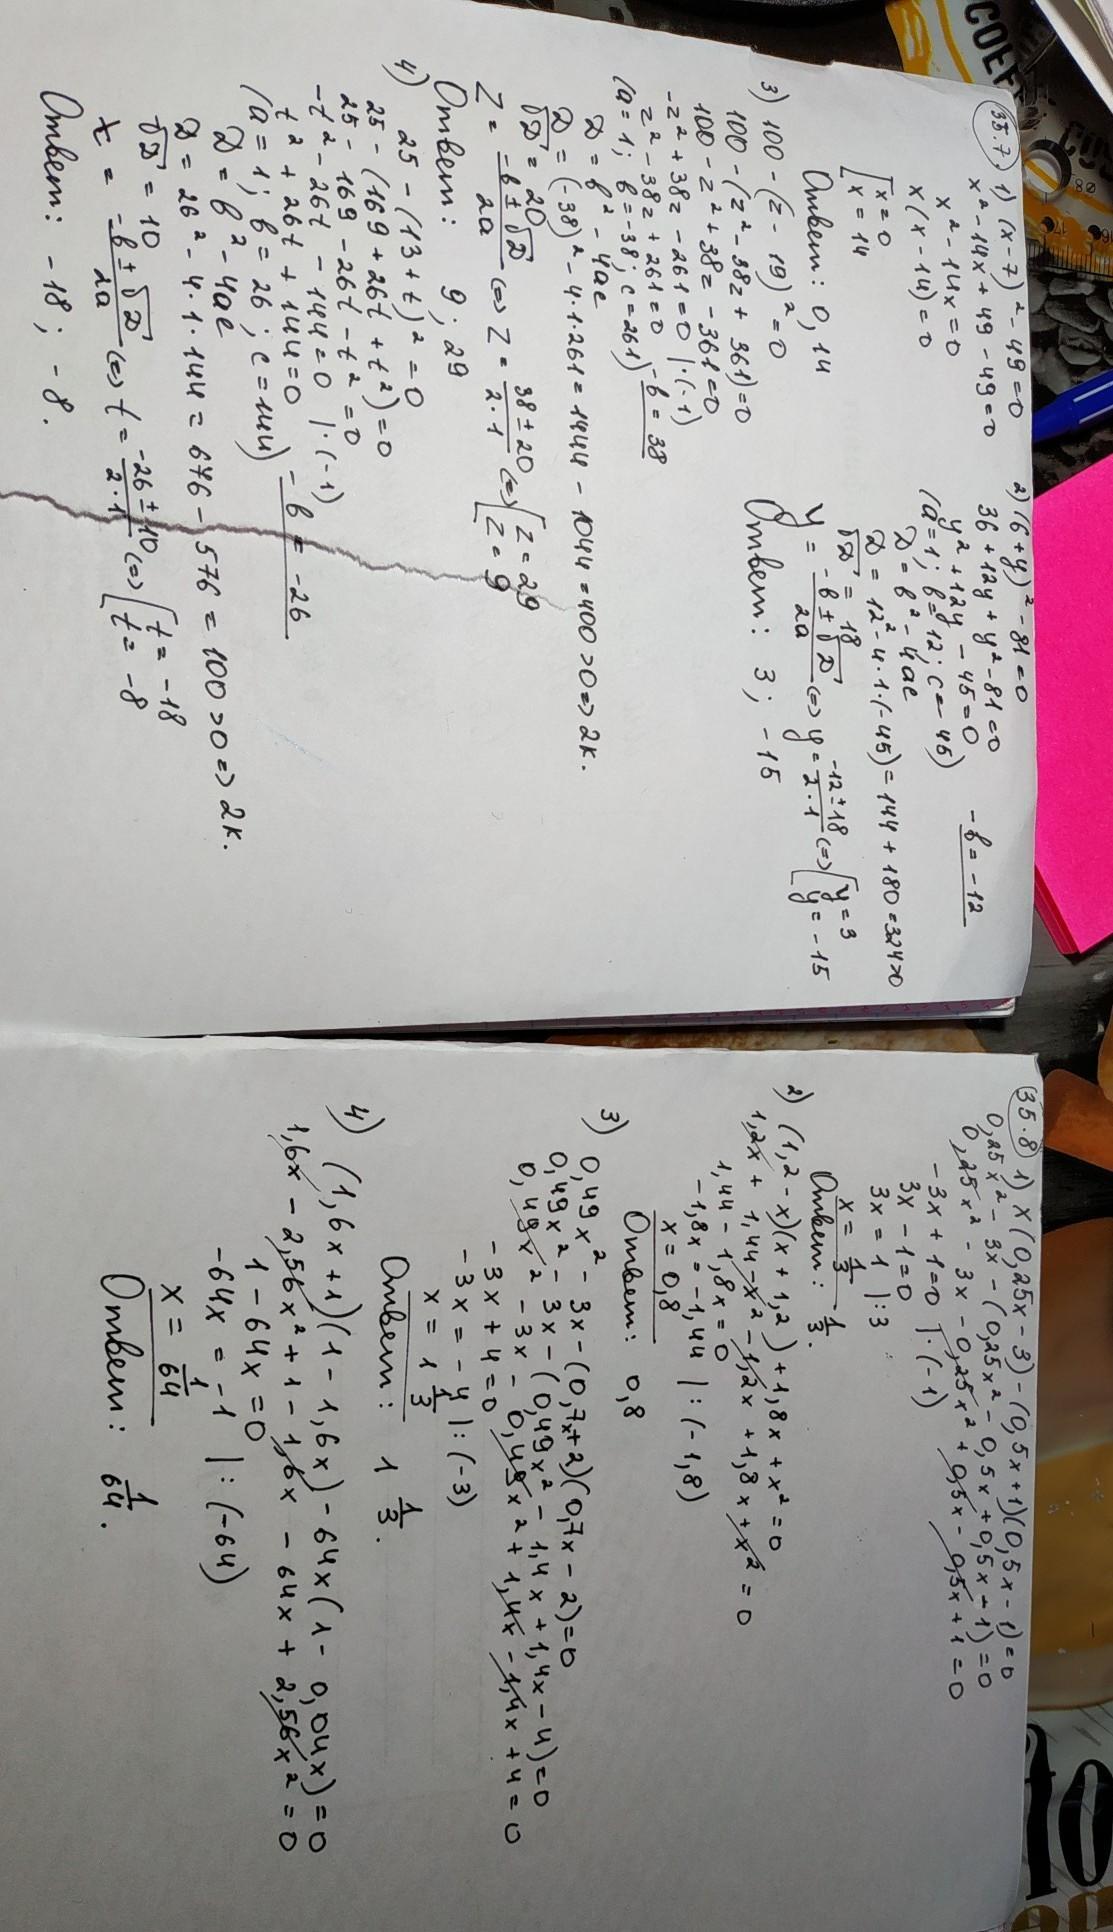 35.7. 1) (x - 7)² - 49 = 0
x² - 14x + 49 - 49 = 0
x² - 14x = 0
x(x - 14) = 0
[x = 0
[x = 14
Ответ: 0, 14
2) (6 + y)² - 81 = 0
36 + 12y + y² - 81 = 0
y² + 12y - 45 = 0
(a = 1; b = 12; c = -45) -b = -12
D = b² - 4ac
D = 12² - 4·1·(-45) = 144 + 180 = 324 > 0
√D = 18
y = (-b ± √D)/2a <=> y = (-12 ± 18)/(2·1) <=> [y = 3
[y = -15
Ответ: 3; -15
3) 100 - (z - 19)² = 0
100 - (z² - 38z + 361) = 0
100 - z² + 38z - 361 = 0
-z² + 38z - 261 = 0 |·(-1)
z² - 38z + 261 = 0
(a = 1; b = -38; c = 261) -b = 38
D = b² - 4ac
D = (-38)² - 4·1·261 = 1444 - 1044 = 400 > 0 => 2к.
√D = 20
z = (-b ± √D)/2a <=> z = (38 ± 20)/(2·1) <=> [z = 29
[z = 9
Ответ: 9; 29
4) 25 - (13 + t)² = 0
25 - (169 + 26t + t²) = 0
25 - 169 - 26t - t² = 0
-t² - 26t - 144 = 0 |·(-1)
t² + 26t + 144 = 0
(a = 1; b = 26; c = 144) -b = -26
D = b² - 4ac
D = 26² - 4·1·144 = 676 - 576 = 100 > 0 => 2к.
√D = 10
x = (-b ± √D)/2a <=> t = (-26 ± 10)/(2·1) <=> [t = -18
[t = -8
Ответ: -18; -8.
35.8 1) x(0,25x - 3) - (0,5x + 1)(0,5x - 1) = 0
0,25x² - 3x - (0,25x² - 0,5x + 0,5x - 1) = 0
0,25x² - 3x - 0,25x² + 0,5x - 0,5x + 1 = 0
-3x + 1 = 0 |·(-1)
3x - 1 = 0
3x = 1 |:3
x = 1/3
Ответ: 1/3.
2) (1,2 - x)(x + 1,2) + 1,8x + x² = 0
1,2x + 1,44 - x² - 1,2x + 1,8x + x² = 0
1,44 - 1,8x = 0
-1,8x = -1,44 |:(-1,8)
x = 0,8
Ответ: 0,8
3) 0,49x² - 3x - (0,7x + 2)(0,7x - 2) = 0
0,49x² - 3x - (0,49x² - 1,4x + 1,4x - 4) = 0
0,49x² - 3x - 0,49x² + 1,4x - 1,4x + 4 = 0
-3x + 4 = 0
-3x = -4 |:(-3)
x = 1 1/3
Ответ: 1 1/3.
4) (1,6x + 1)(1 - 1,6x) - 64x(1 - 0,04x) = 0
1,6x - 2,56x² + 1 - 1,6x - 64x + 2,56x² = 0
1 - 64x = 0
-64x = -1 |:(-64)
x = 1/64
Ответ: 1/64.